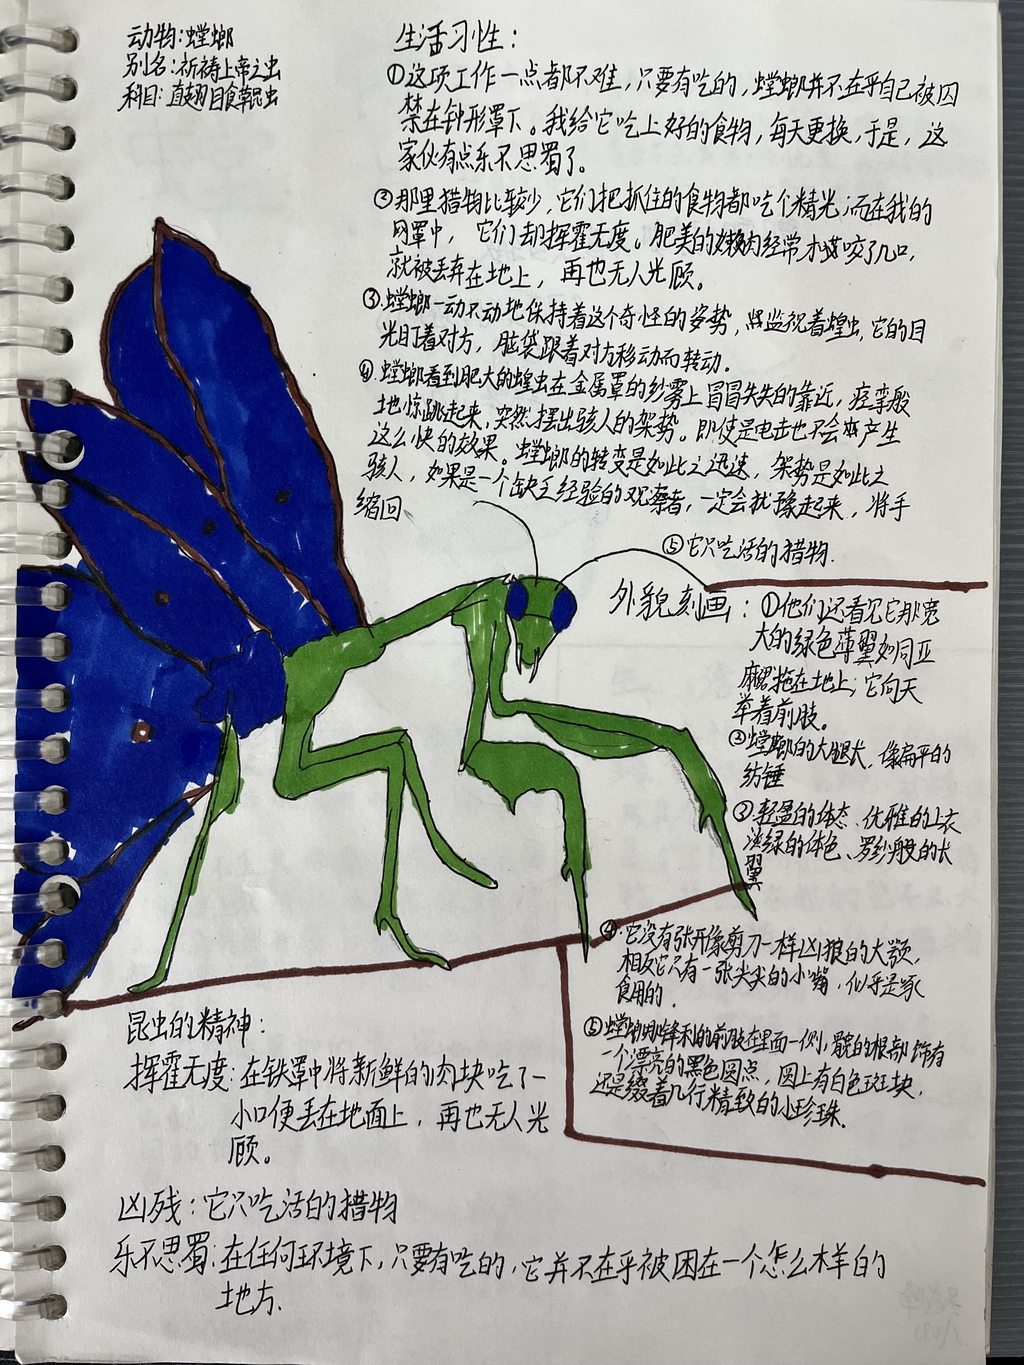 动物:螳螂
别名:祈祷上帝之虫
科目:直翅目食草昆虫
生活习性:
①这项工作一点都不难,只要有吃的,螳螂并不在乎自己被囚
禁在钟形罩下。我给它吃上好的食物,每天更换,于是,这
家伙有点乐不思蜀了。
②那里猎物比较少,它们把抓住的食物都吃个精光;而在我的
网罩中,它们却挥霍无度。肥美的嫩肉经常才咬了几口,
就被丢弃在地上,再也无人光顾。
③螳螂一动不动地保持着这个奇怪的姿势,监视着蝗虫,它的目
光盯着对方,脑袋跟着对方移动而转动。
④螳螂看到肥大的蝗虫在金属罩的纱雾上冒冒失失的靠近,痉挛般
地惊跳起来,突然摆出骇人的架势。即使是电击也不会产生
这么快的效果。螳螂的转变是如此之迅速,架势是如此之
骇人,如果是一个缺乏经验的观察者,一定会犹豫起来,将手
缩回
⑤它只吃活的猎物.
外貌刻画:①他们还看见它那宽
大的绿色薄翼如同亚
麻裙拖在地上;它向天
举着前肢。
②螳螂的大腿大,像扁平的
纺锤
③轻盈的体态、优雅的上衣
淡绿的体色、罗纱般的长
翼
④它没有张开像剪刀一样凶狠的大颚,
相反它只有一张尖尖的小嘴,似乎是啄
食用的.
⑤螳螂那锋利的前肢在里面一侧,的根部饰有
一个漂亮的黑色圆点,圆上有白色斑块,
还是缀着几行精致的小珍珠.
昆虫的精神:
挥霍无度:在铁罩中将新鲜的肉块吃了一
小口便丢在地面上,再也无人光
顾。
凶残:它只吃活的猎物
乐不思蜀:在任何环境下,只要有吃的,它并不在乎被困在一个怎么样的
地方.